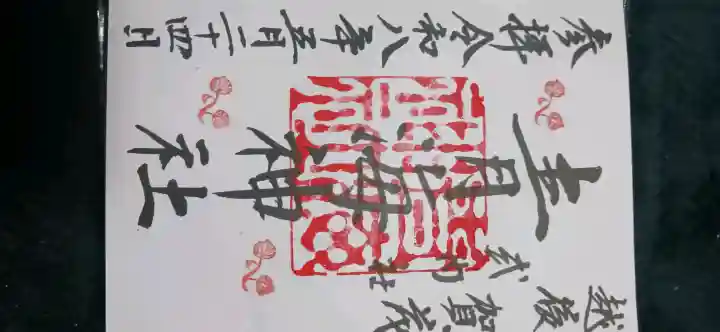 越後賀茂
式内社
青海神社
奉拝令和八年五月二十四日